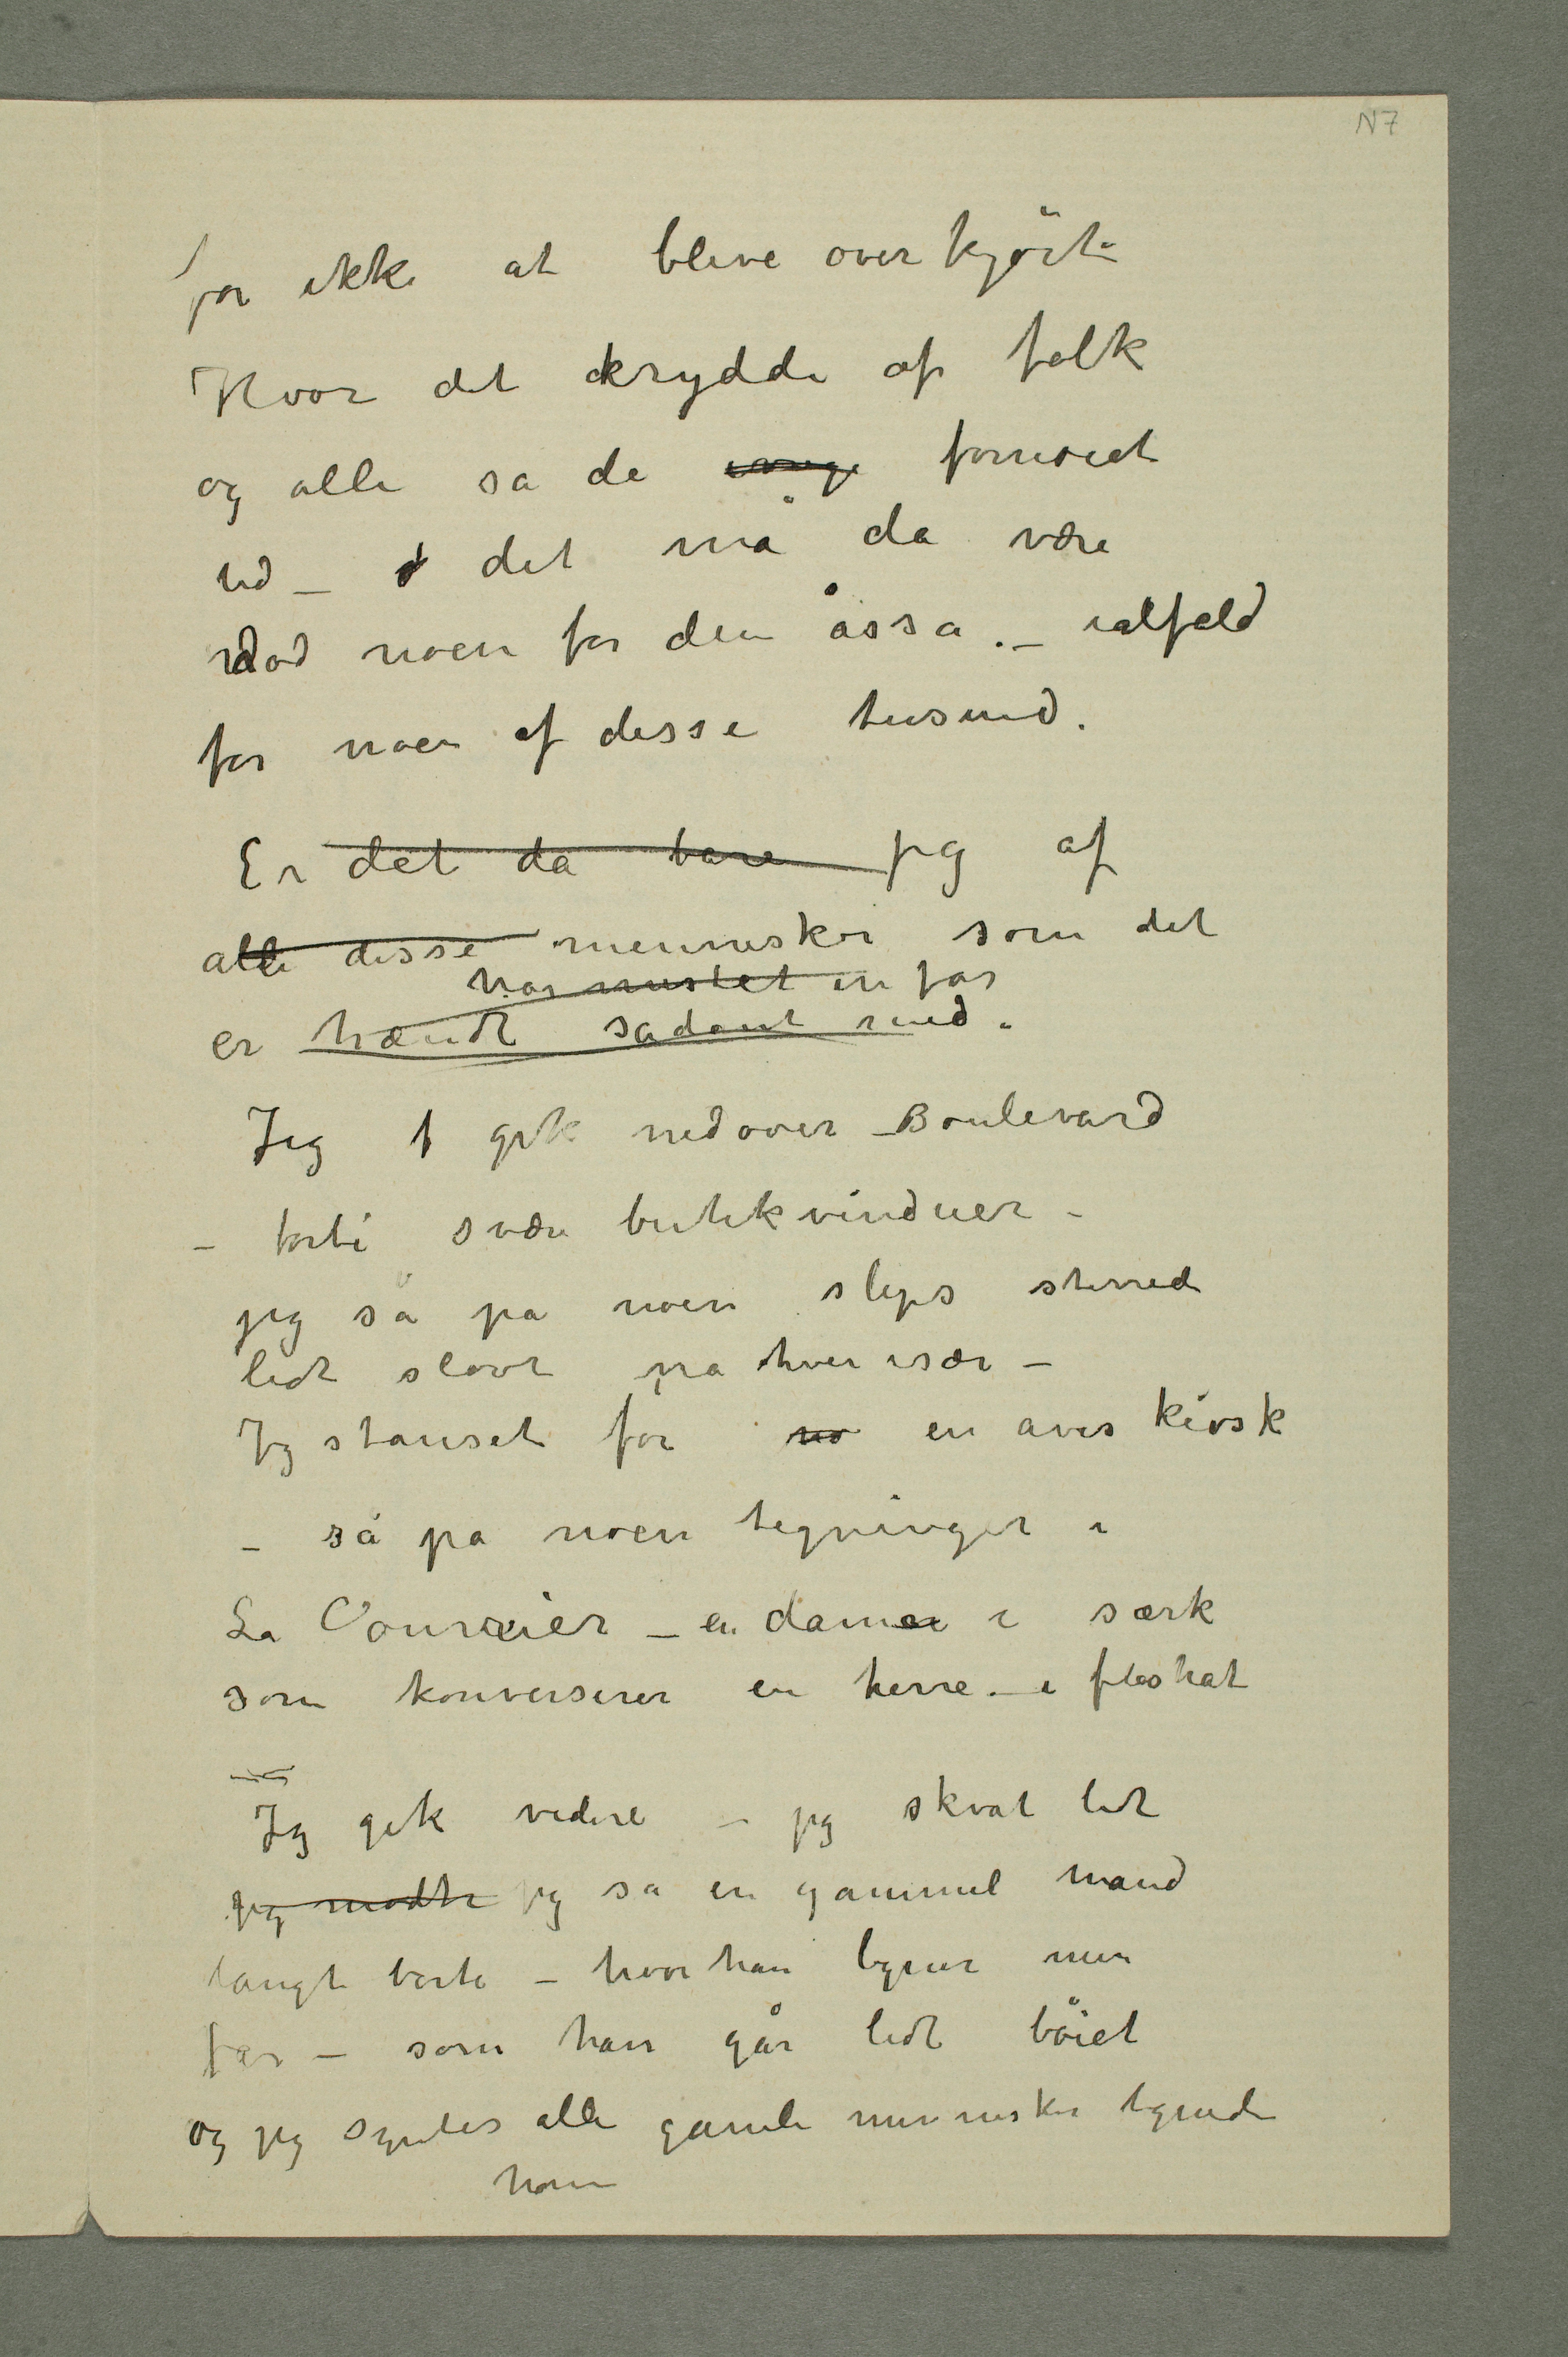 N7
for ikke at blive overkjört
Hvor det krydde af folk
og alle så de fornöiet
ud – det må da være
död noen for dem åsså. – ialfald
for noen af disse tusind.
Er det da bare jeg af
alle disse mennesker som det
har mistet en far
er hændt sådant med.
Jeg gik nedover Boulevard
– forbi svære butikvinduer –
jeg så på noen slips stirred
lidt slövt på hver især –
Jeg stanset for en avis kiosk
– så på noen tegninger i
La Courrier – en dame i særk
som konverserer en herre – i floshat
Jeg gik videre – jeg skvat lidt
jeg mödte jeg så en gammel mand
langt borte – hvor han ligner min
far – som han går lidt böiet
og jeg syntes alle gamle mennesker lignede
ham